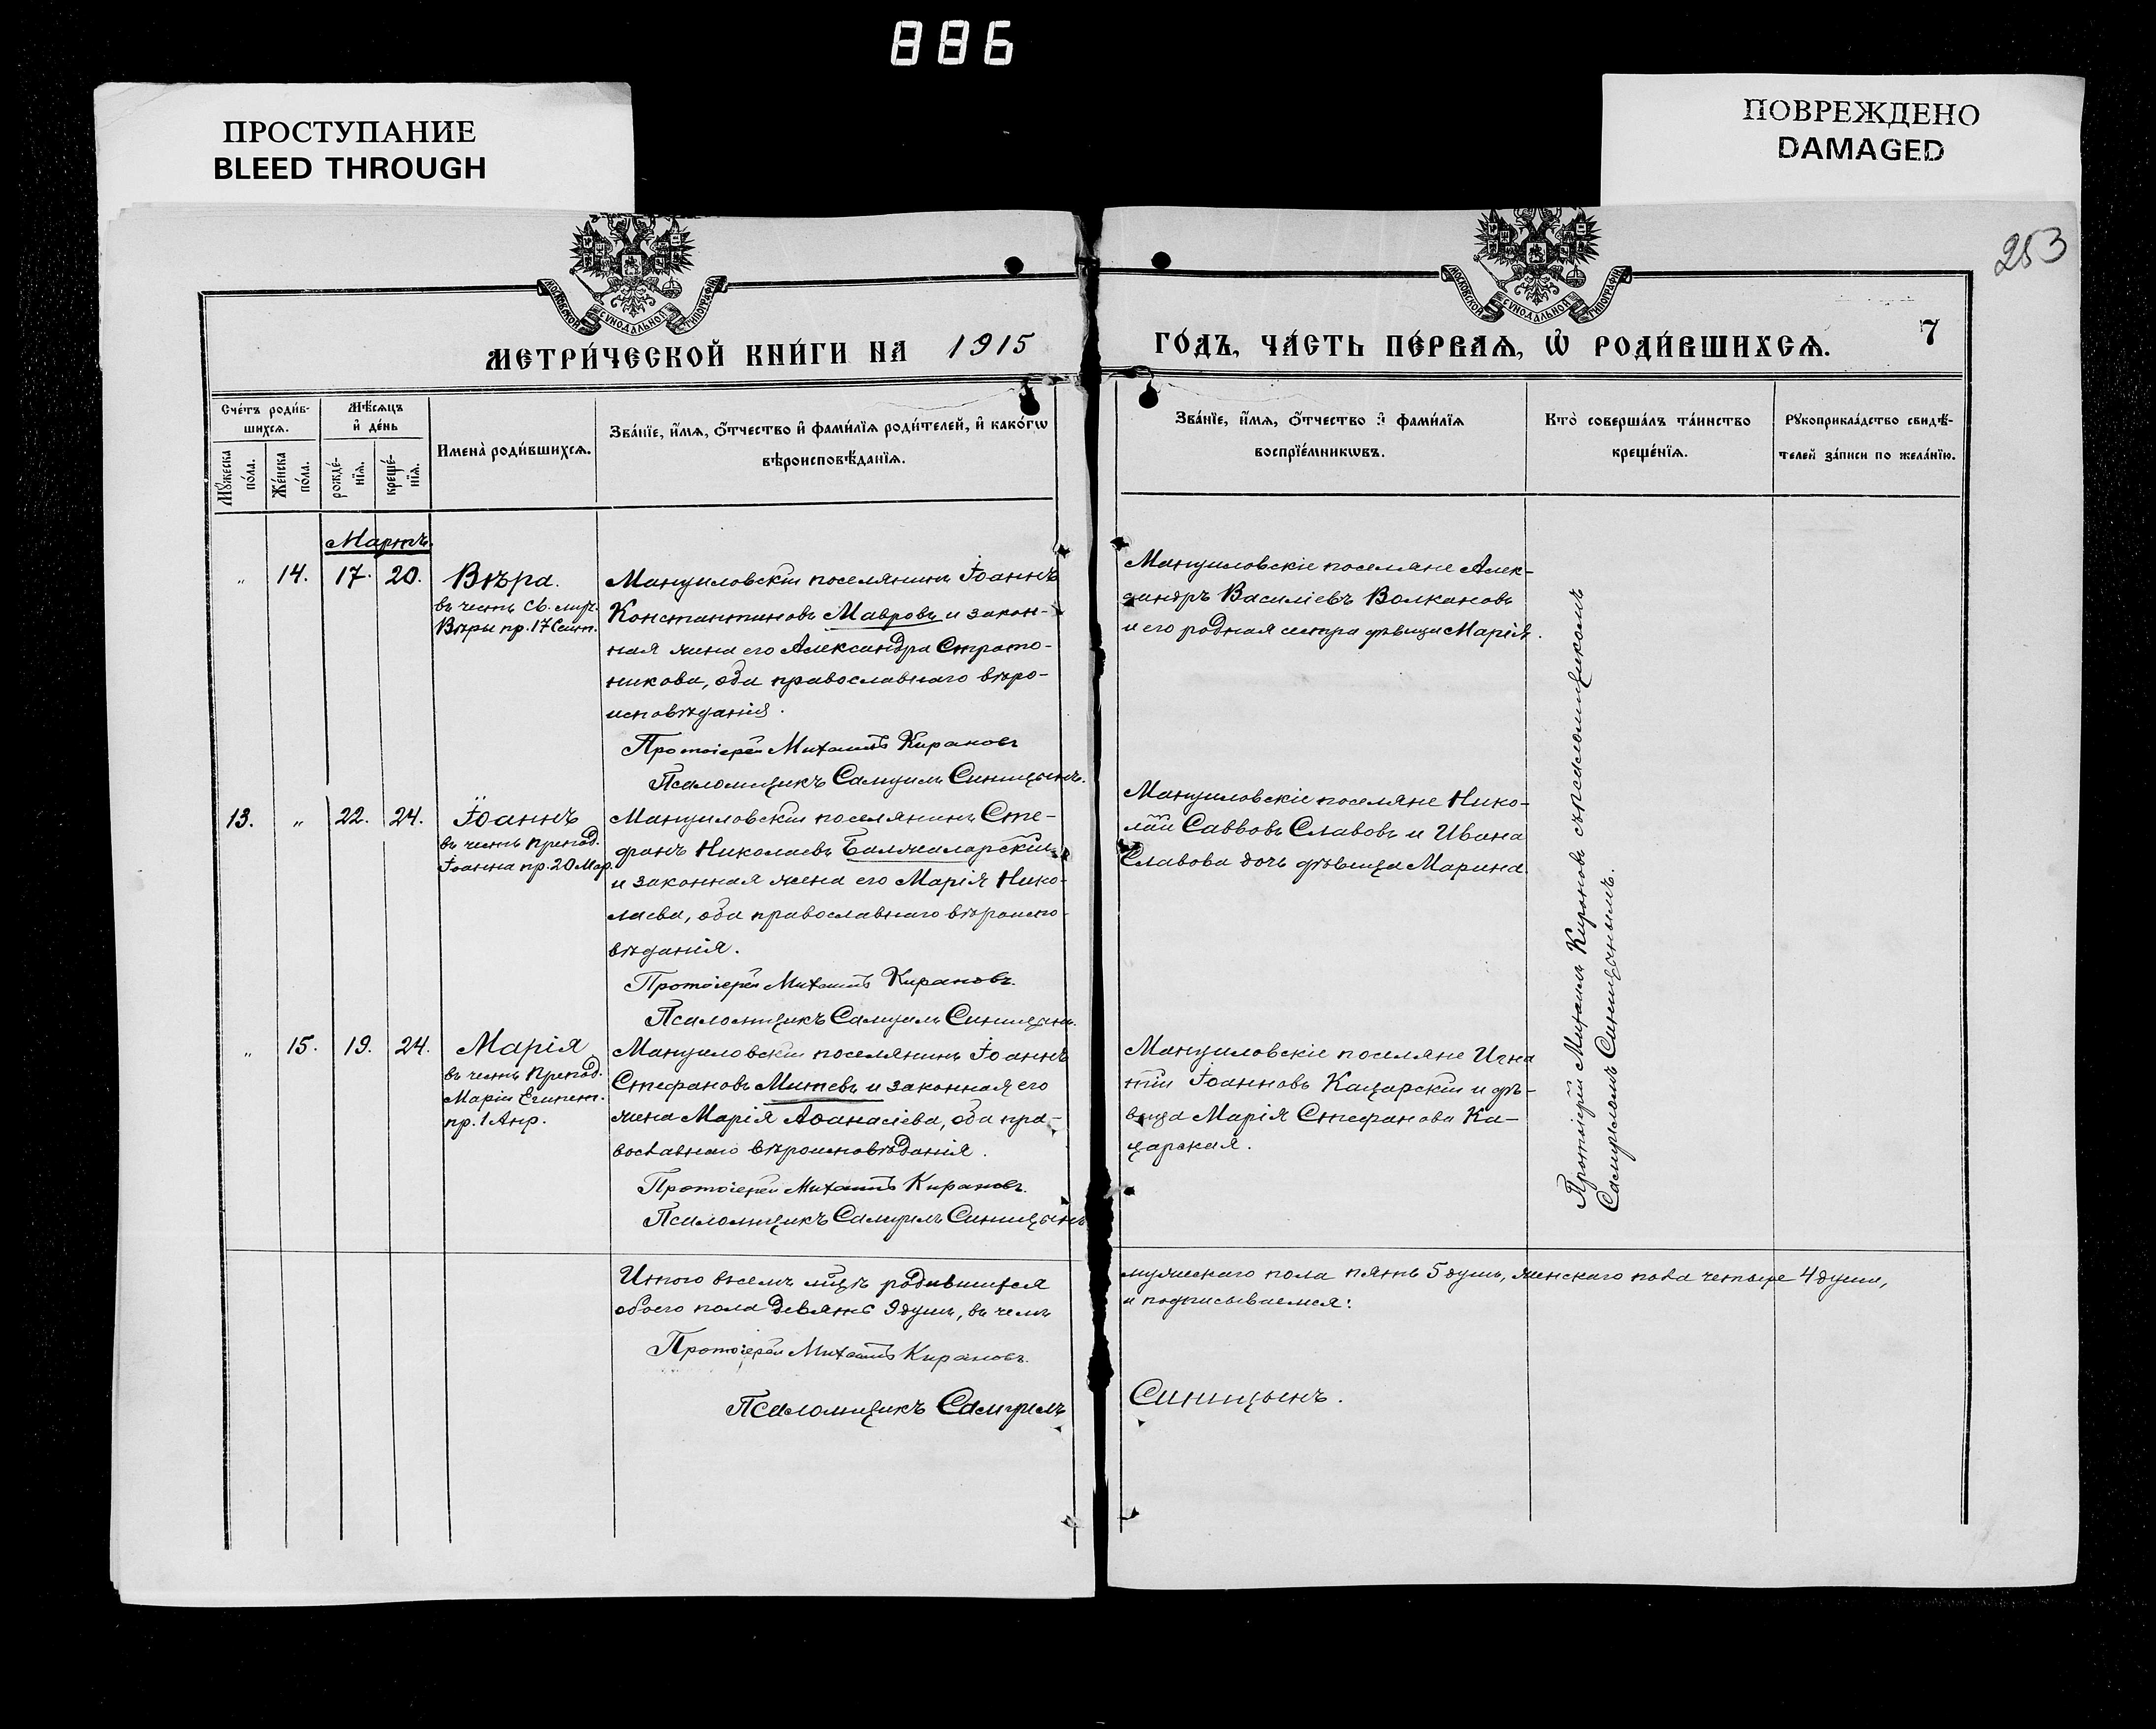 886
ПРОСТУПАНИЕ
BLEED THROUGH
ПОВРЕЖДЕНО
DAMAGED
253
МОСКОВСКОЙ СѴНОДАЛЬНОЙ ТИПОГРАФІИ
МОСКОВСКОЙ СѴНОДАЛЬНОЙ ТИПОГРАФІИ
МЕТРИ́ЧЕСКОЙ КНИ́ГИ НА 1915
ГО́ДЪ, ЧА́СТЬ ПЕ́РВАѦ, Ѡ҆ РОДИ́ВШИХСѦ.
7
Сче́тъ роди́в-
шихсѧ.
Мꙋ́жеска
по́ла.
Же́нска
по́ла.
Мѣ́сѧцъ
и҆ де́нь
рожде́-
нїѧ.
креще́-
нїѧ.
Имена̀ роди́вшихсѧ.
Зва́нїе, и҆́мѧ, ѻ҆́тчество и҆ фами́лїѧ роди́телей, и҆ како́гѡ
вѣроисповѣ́данїѧ.
Зва́нїе, и҆́мѧ, ѻ҆́тчество и҆ фами́лїѧ
воспрїе́мникѡвъ.
Кто̀ соверша́лъ та́инство
креще́нїѧ.
Рꙋкоприкла́дство свидѣ́-
телей за́писи по жела́нїю.
Мартъ.
„ 14. 17. 20. Вѣра.
въ честь св. муч.
Вѣры пр. 17 Сент.
Мануиловскій поселянинъ Іоаннъ
Константиновъ Мавровъ и закон-
ная жена его Александра Страто-
никова, оба православнаго вѣро-
исповѣданія.
Протоіерей Михаилъ Кирановъ
Псаломщикъ Самуилъ Синицынъ.
Мануиловскіе поселяне Алек-
сандръ Василіевъ Волкановъ
и его родная сестра дѣвица Марія.
13. „ 22. 24. Іоаннъ
въ честь препод.
Іоанна пр. 20 Мар.
Мануиловскій поселянинъ Сте-
фанъ Николаевъ Балжаларскій
и законная жена его Марія Нико-
лаева, оба православнаго вѣроиспо-
вѣданія.
Протоіерей Михаилъ Кирановъ.
Псаломщикъ Самуилъ Синицынъ.
Мануиловскіе поселяне Нико-
лай Саввовъ Славовъ и Ивана
Славова дочь дѣвица Марина.
„ 15. 19. 24. Марія
въ честь Препод.
Маріи Египет.
пр. 1 Апр.
Мануиловскій поселянинъ Іоаннъ
Стефановъ Митевъ и законная его
жена Марія Аѳанасіева, оба пра-
вославнаго вѣроисповѣданія.
Протоіерей Михаилъ Кирановъ.
Псаломщикъ Самуилъ Синицынъ
Мануиловскіе поселяне Игна
тій Іоанновъ Кацарскій и дѣ-
вица Марія Стефанова Ка-
царская.
Протоіерей Михаилъ Кирановъ съ псаломщикомъ
Самуиломъ Синицынымъ.
Итого всемъ родившихся
обоего пола девять 9 душъ, въ чемъ
мужескаго пола пять 5 душъ, женскаго пола четыре 4 души,
и подписываемся:
Протоіерей Михаилъ Кирановъ.
Псаломщикъ Самуилъ Синицынъ.